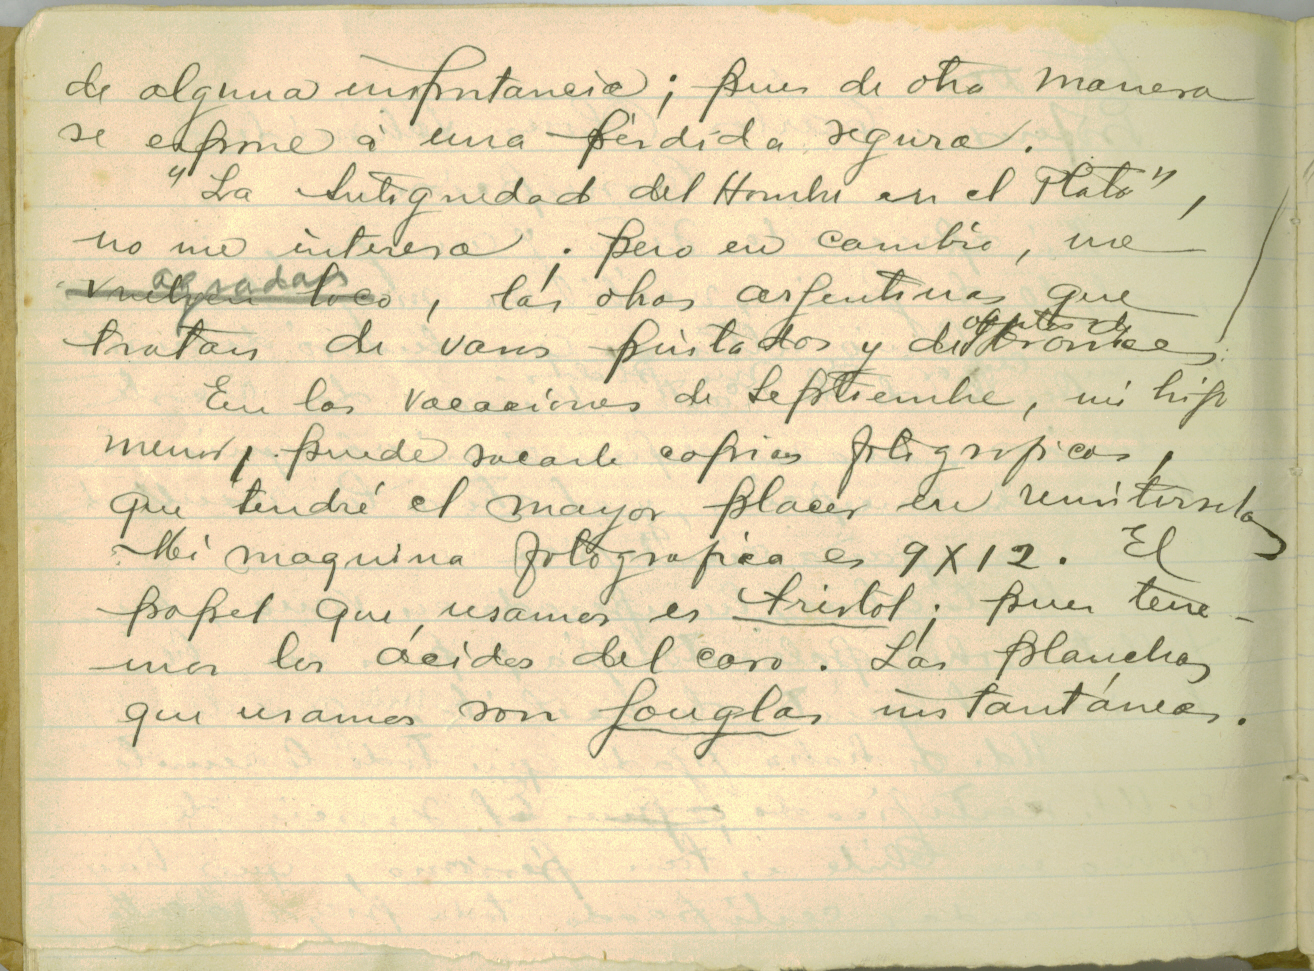 de alguna importancia; pues de otra manera
se expone á una pérdida segura.
"La Antiguedad del Hombre en el Plata",
no me interesa; pero en cambio, me
agradan
vuelven loco, las obras argentinas que
objetos de
tratan de vasos pintados y de bronces.
En las vacaciones de Septiembre, mi hijo
menor, puede sacarle copias fotograficas,
que tendré el mayor placer en remitirselas
Mi maquina fotografica es 9X12. El
papel que usamos es Aristol; pues tene-
mos los ácidos del caso. Las planchas
que usamos son Jouglas instantáneas.